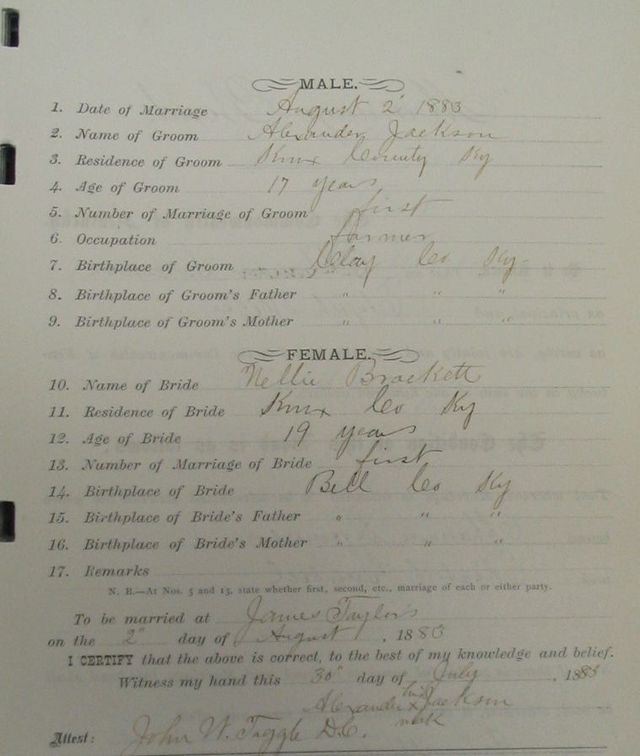 MALE.
1. Date of Marriage August 2" 1883
2. Name of Groom Alexander Jackson
3. Residence of Groom Knox County Ky
4. Age of Groom 17 years
5. Number of Marriage of Groom first
6. Occupation farmer
7. Birthplace of Groom Clay Co Ky
8. Birthplace of Groom's Father " " "
9. Birthplace of Groom's Mother " " "
FEMALE.
10. Name of Bride Nellie Brockett
11. Residence of Bride Knox Co Ky
12. Age of Bride 19 years
13. Number of Marriage of Bride first
14. Birthplace of Bride Bell Co Ky
15. Birthplace of Bride's Father " " "
16. Birthplace of Bride's Mother " " "
17. Remarks
N. B.—At Nos. 5 and 13, state whether first, second, etc., marriage of each or either party.
To be married at James Taylor's
on the 2" day of August, 1883
I CERTIFY that the above is correct, to the best of my knowledge and belief.
Witness my hand this 30" day of July, 1883
Alexander his x Jackson
mark
Attest: John W. Tuggle D.C.